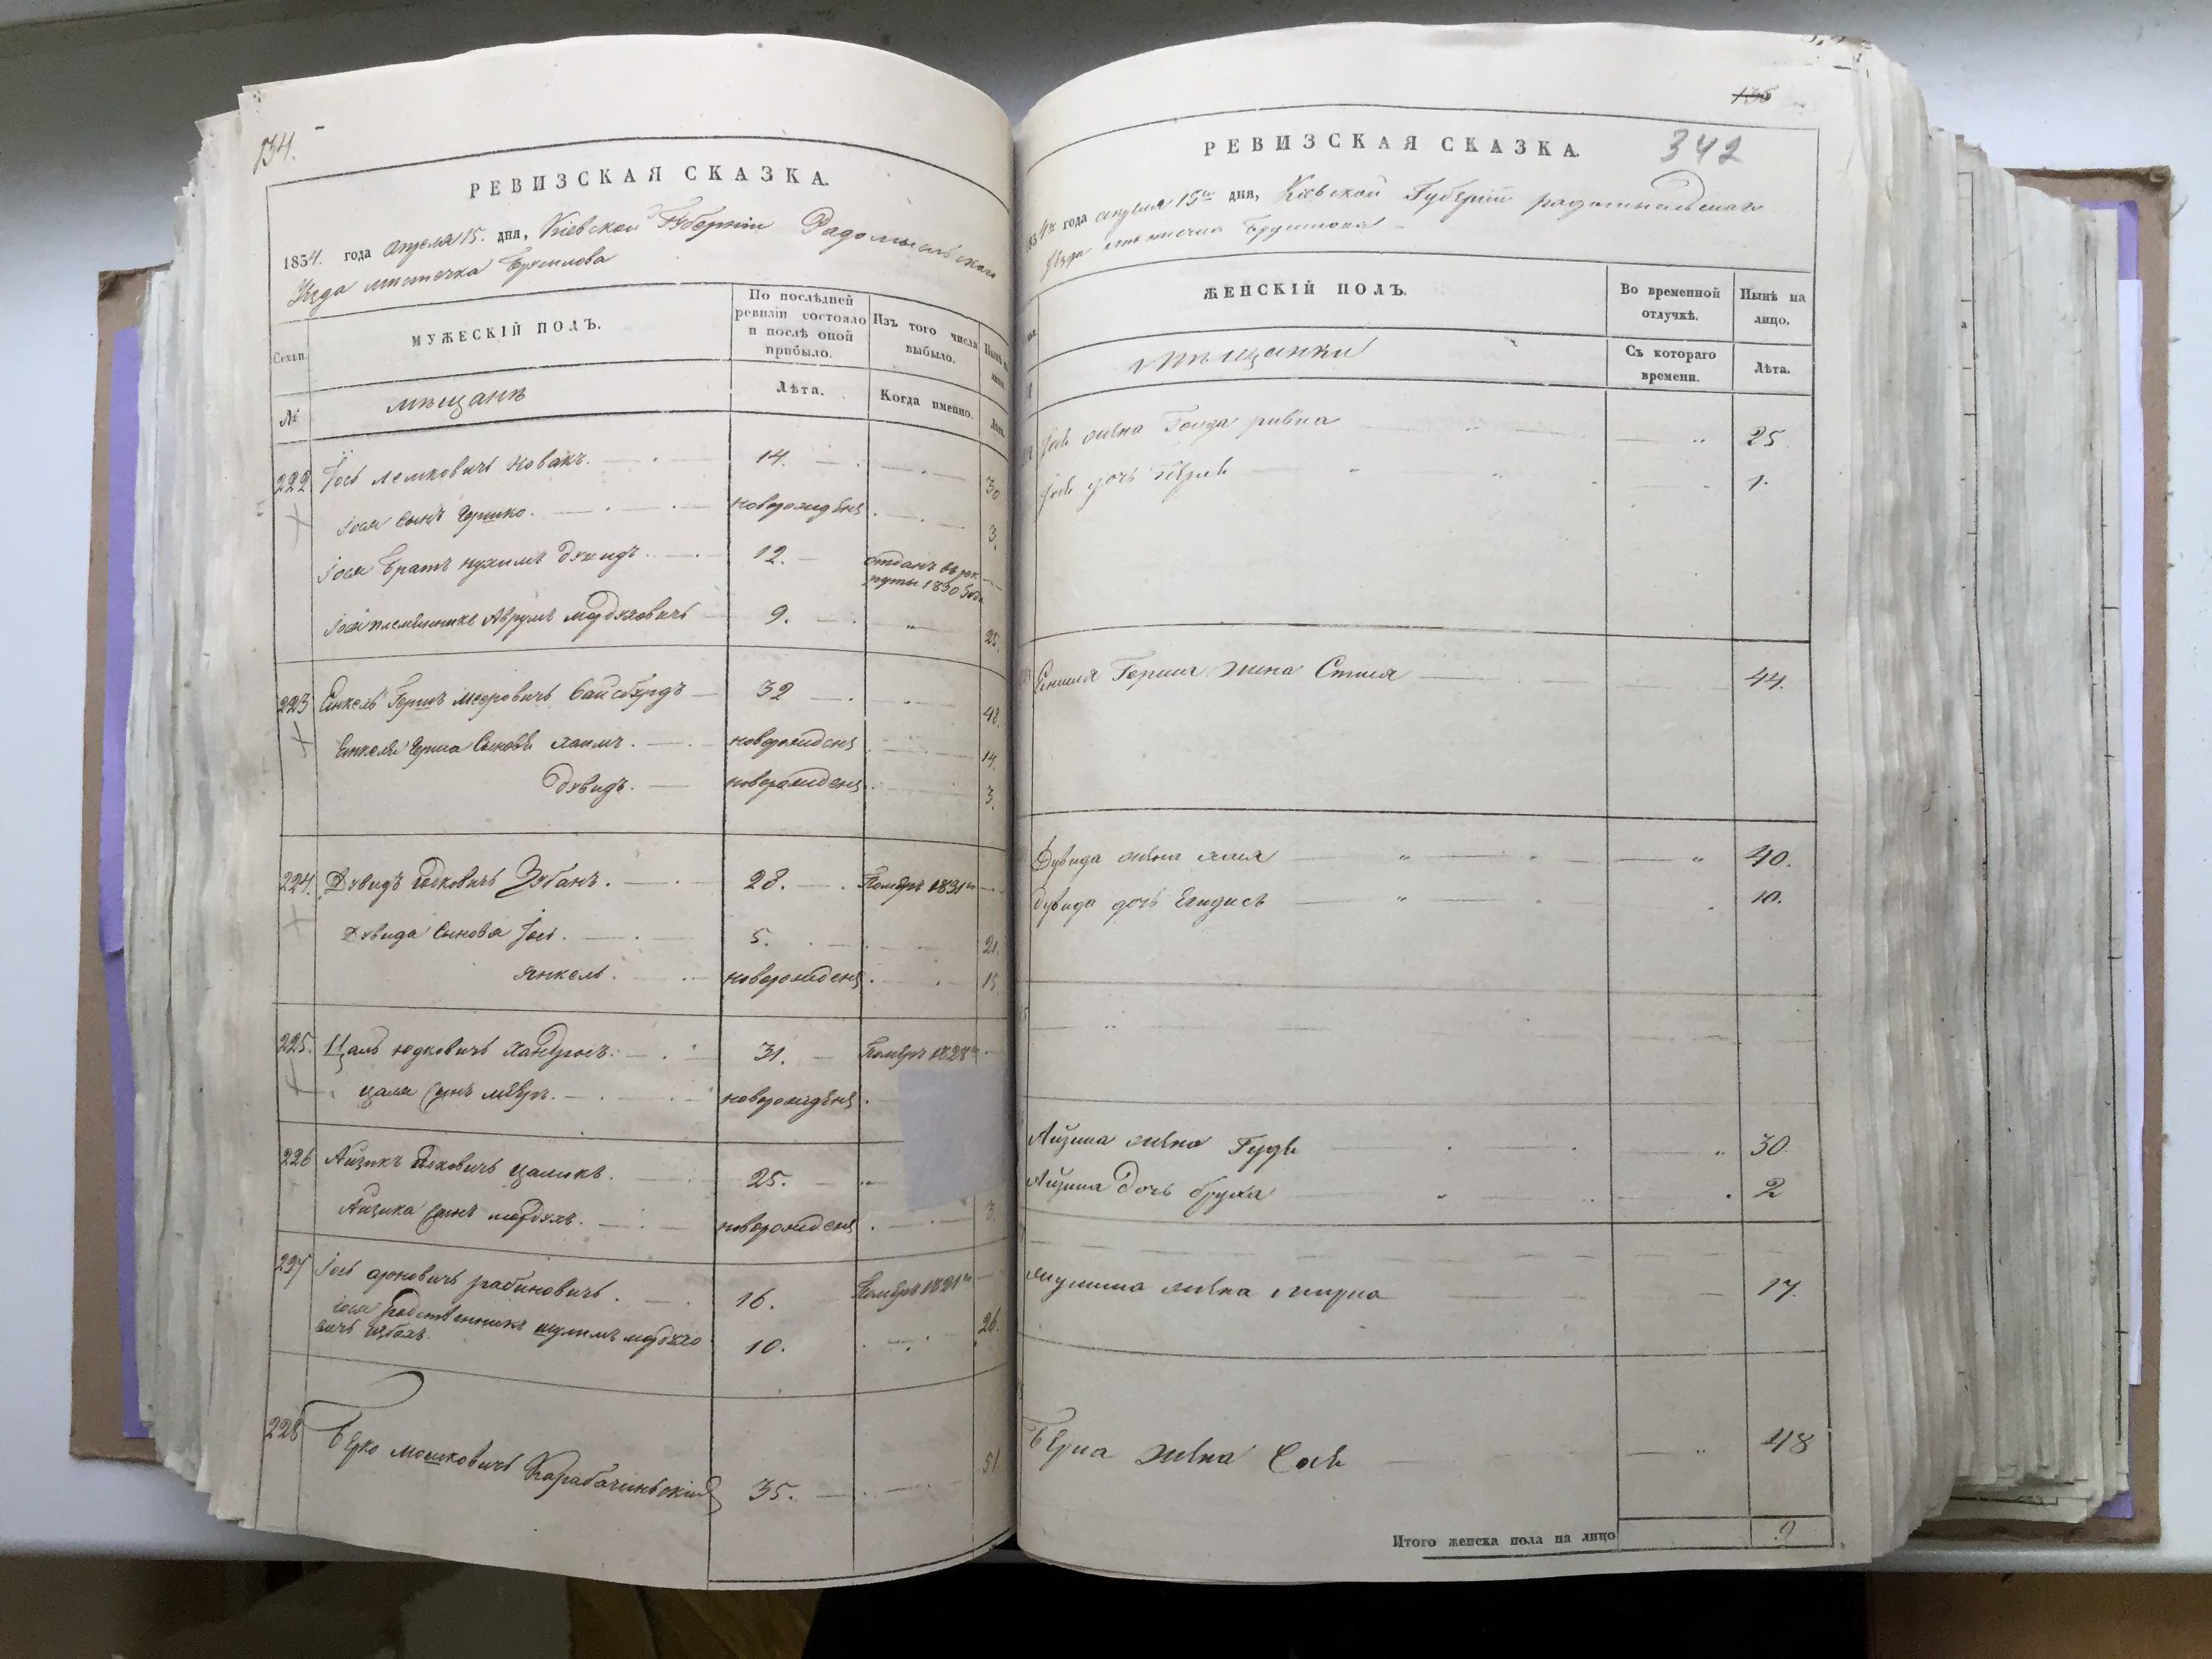 134.
РЕВИЗСКАЯ СКАЗКА.
1854. года апреля 15. дня, Кіевской Губерніи Радомысльскаго
Уезда местечка Брусилова
Семьи.
МУЖЕСКІЙ ПОЛЪ.
По послѣдней ревизіи состояло и послѣ оной прибыло.
Изъ того числа выбыло.
№
мещане
Лѣта.
Когда именно.
Лѣта.
222 Іось Лемковичъ Новакъ. 14. 30
Іося сынъ Гершко. новорожденъ 3.
Іося братъ Нухимъ Дувидъ. 12. отданъ в рекруты 1850 года
Іося племянникъ Аврумъ Мордуховичъ 9. 25.
223 Енкель Гершъ Мееровичъ 32 48.
Енкеля Герша сыновя Хаимъ. новорожденъ 14.
Дувидъ. новорожденъ 3.
224. Дувидъ Іоськовичъ Зубанъ. 28. Померъ 1851
Дувида сыновя Іось. 5. 21.
Янкель. новорожденъ 15
225. Цаль Юдковичъ 31. Померъ 1828
Цаля сынъ новорожденъ
226 Айзикъ Цаликъ. 25.
Айзика сынъ Мордухъ. новорожденъ 3.
227 Іось Ароновичъ Рабиновичъ. 16. Померъ
Іося родственникъ Шулимъ Мордухо
вичъ 10. 26.
228 Берко Мошковичъ Карабачинскій 35. 51
135
РЕВИЗСКАЯ СКАЗКА. 342
года апреля 15го дня, Кіевской Губерніи Радомысльскаго
Уезда местечка Брусилова
ЖЕНСКІЙ ПОЛЪ.
Во временной отлучкѣ.
Нынѣ на лицо.
мещанки
Съ котораго времени.
Лѣта.
Іося жена Голда Ривка 25
Іося дочь Перля 1.
Енкеля Герша жена Стися 44.
Дувида жена Хая 40.
Дувида дочь 10.
Айзика жена Гудя 30
Айзика дочь Бруха 2
Шулима жена Мирка 17.
Берка жена Сося 48
Итого женска пола на лицо 9